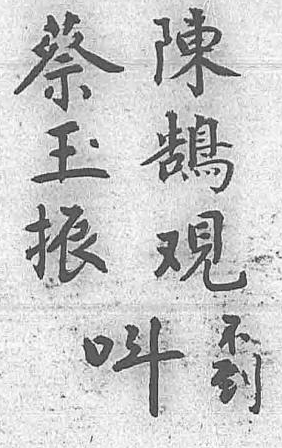 陳鵠观不到
蔡玉振
呌